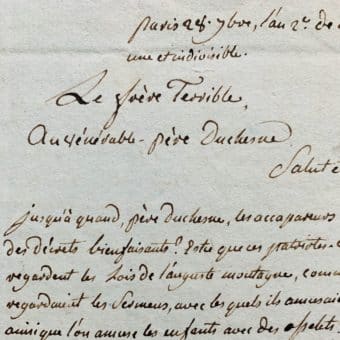 Paris 28. 7bre, l'an 2e. de
une et indivisible.
Le frère Terrible,
Au vénérable père Duchesne
Salut e
jusqu'à quand, père duchesne, les accapareurs
des décrets bienfaisants? Este que ces patriotes
regardent les Lois de l'auguste montagne, comm
regardaient les Sermens, avec les quels ils amusai
ainsi que l'on amuse les enfants avec des osselets